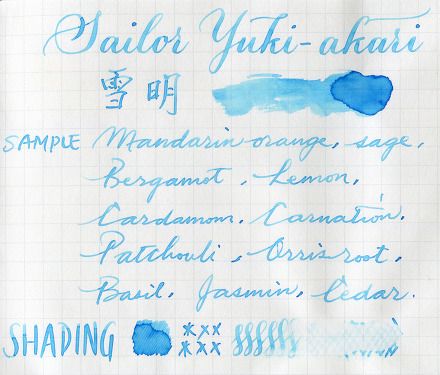 Sailor Yuki-akari
雪明
SAMPLE Mandarin orange, sage,
Bergamot, Lemon,
Cardamom, Carnation,
Patchouli, Orris root,
Basil, Jasmin, Cedar.
SHADING